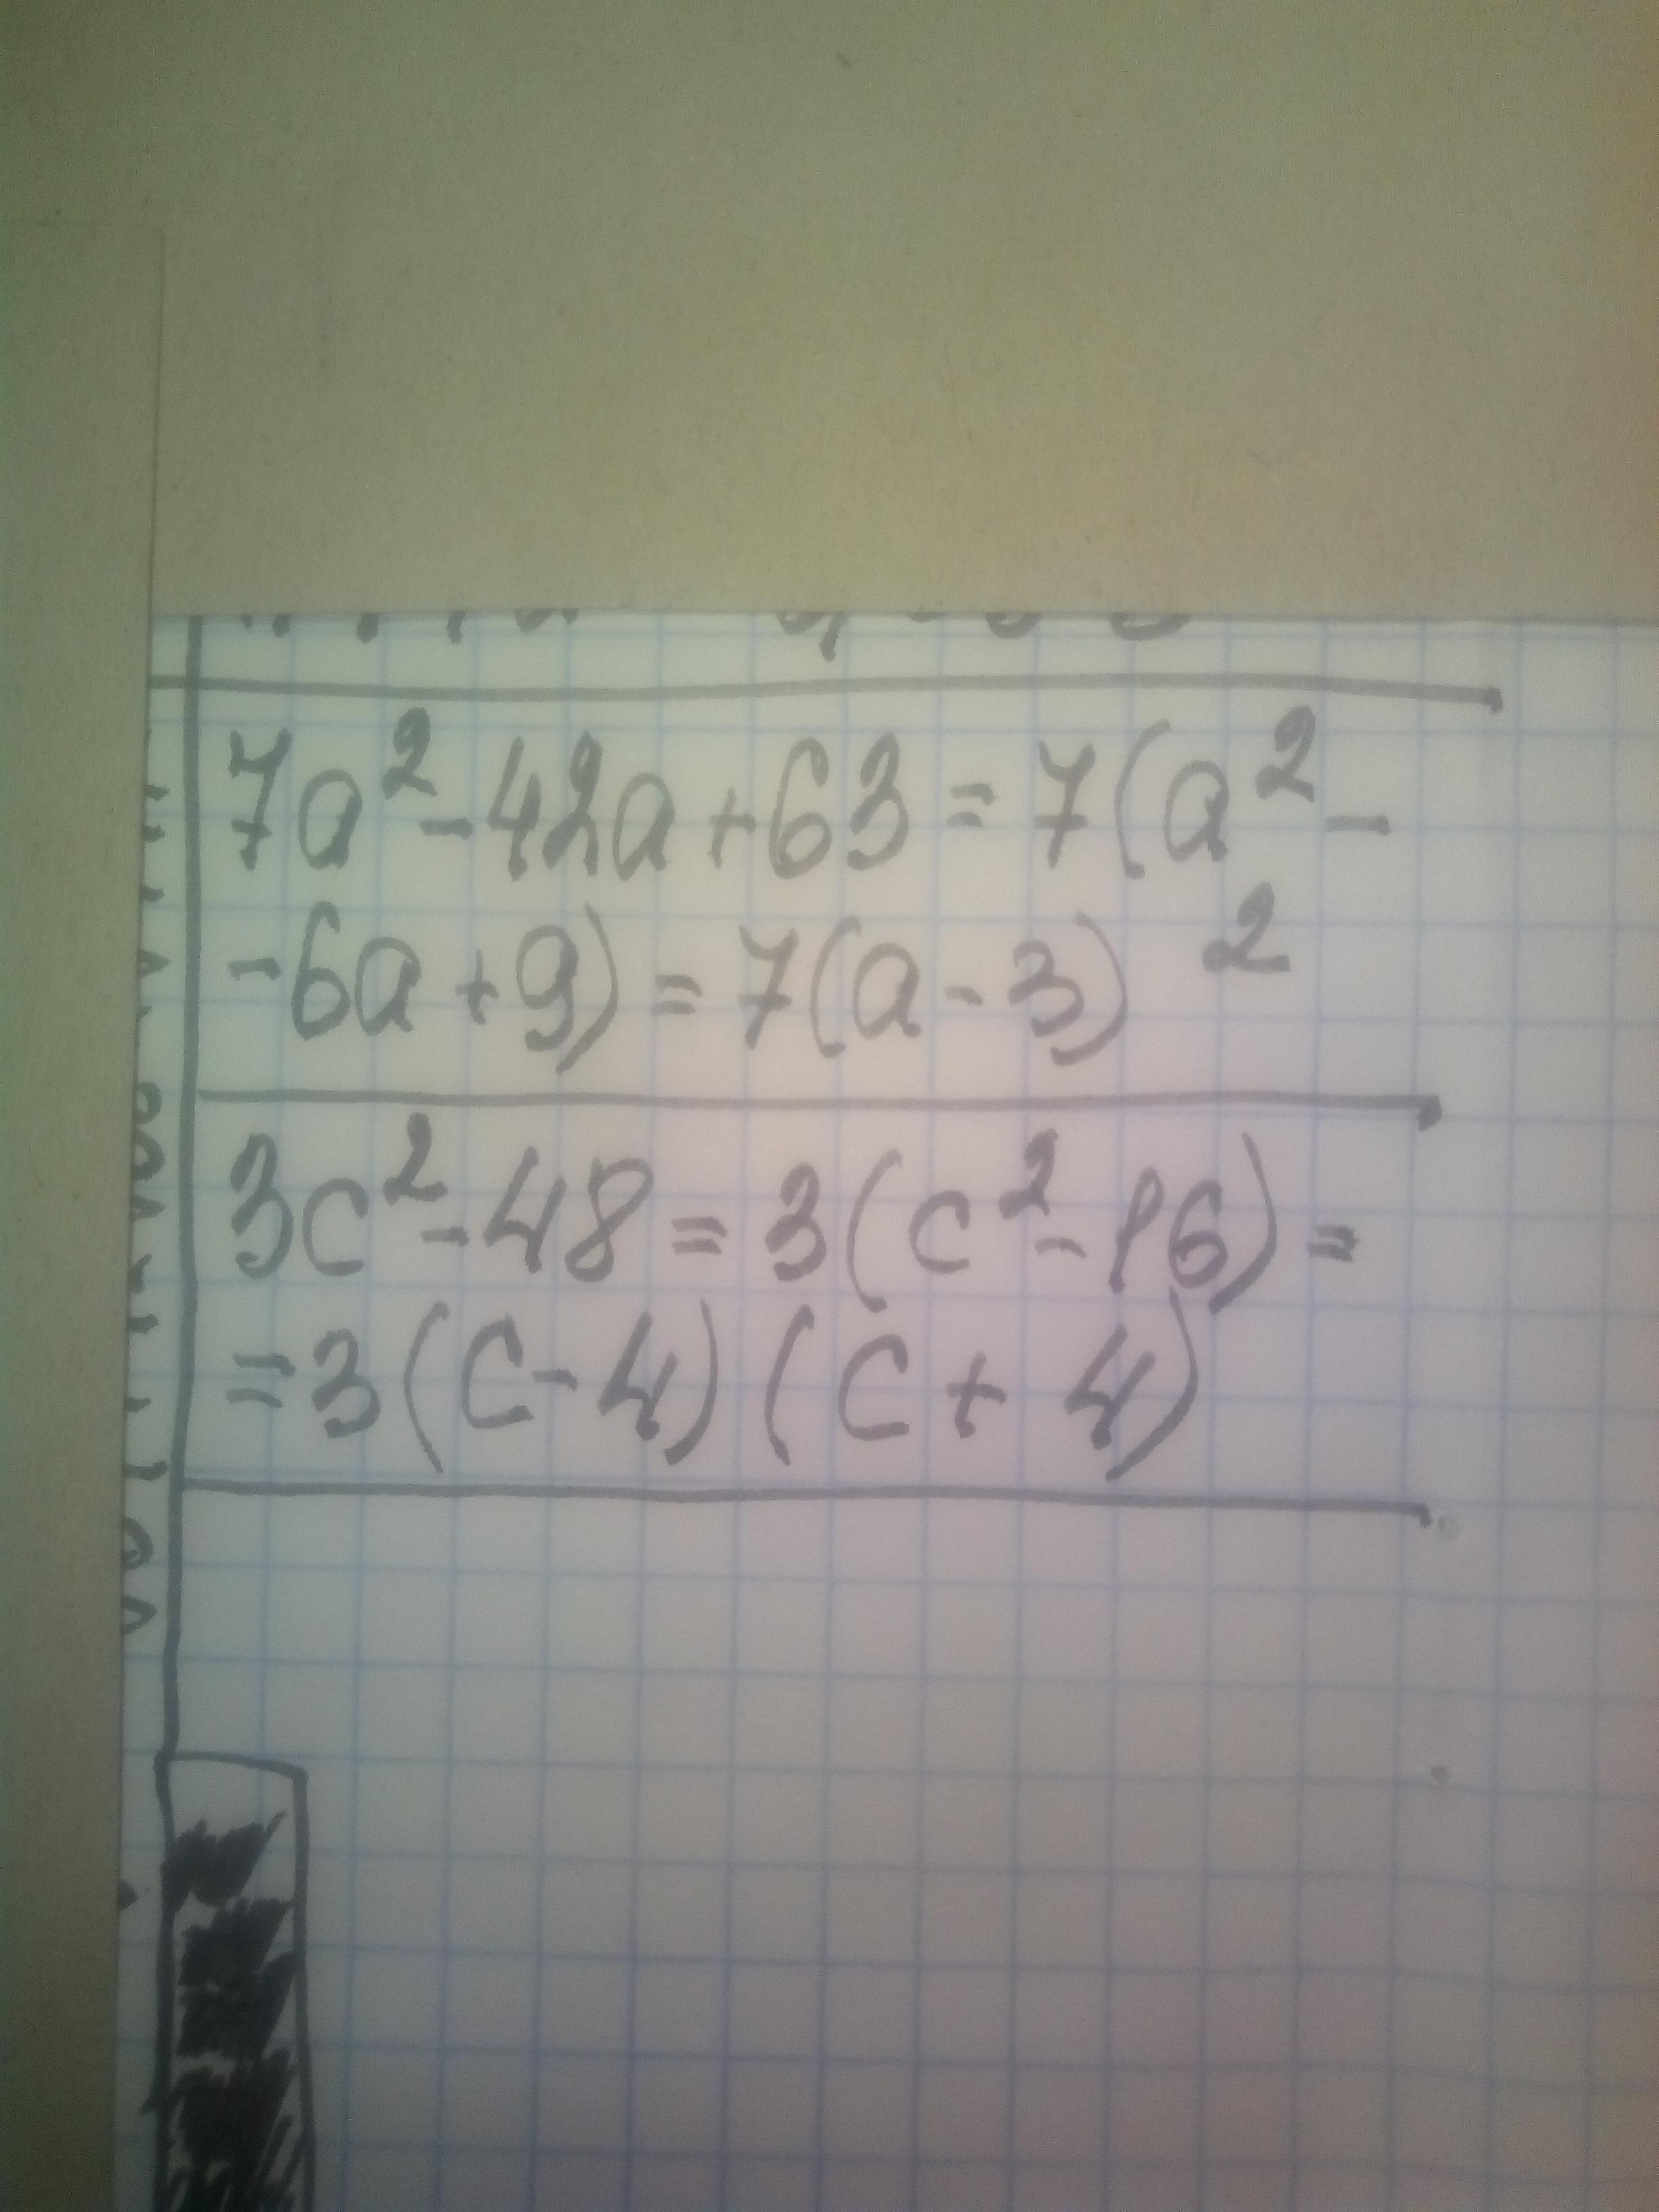 7a² - 42a + 63 = 7(a² -
- 6a + 9) = 7(a - 3)²
3c² - 48 = 3(c² - 16) =
= 3(c - 4)(c + 4)